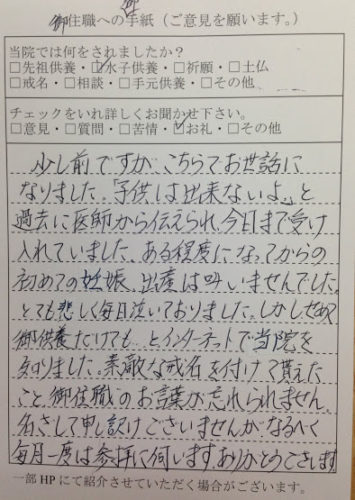 御住職への御手紙(ご意見を願います。)
当院では何をされましたか?
□先祖供養・☑水子供養・□祈願・□土仏
□戒名・□相談・□手元供養・□その他
チェックをいれ詳しくお聞かせ下さい。
□意見・□質問・□苦情・☑お礼・□その他
少し前ですが、こちらでお世話に
なりました。「子供は出来ないよ。」と
過去に医師から伝えられ、今日まで受け
入れていました。ある程度になってからの
初めての妊娠、出産は叶いませんでした。
とても悲しく毎日泣いておりました。しかしせめて
御供養だけでも…とインターネットで当院を
知りました。素敵な戒名を付けて貰えた
こと御住職のお言葉が忘れられません。
名さして申し訳ございませんがなるべく
毎月一度は参拝に伺います。ありがとうございます
一部HPにて紹介させていただく場合がございます。